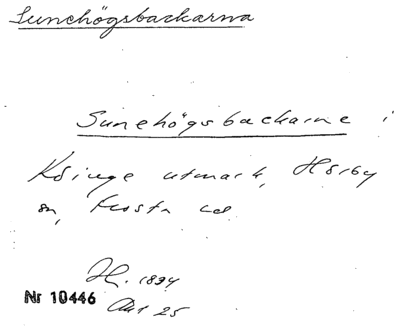 Sunehögsbackarna
Sunehögsbackarne i
Köinge utmark, Hörby
sn, Frosta hd
H. 1894
Nr 10446
Akt 25